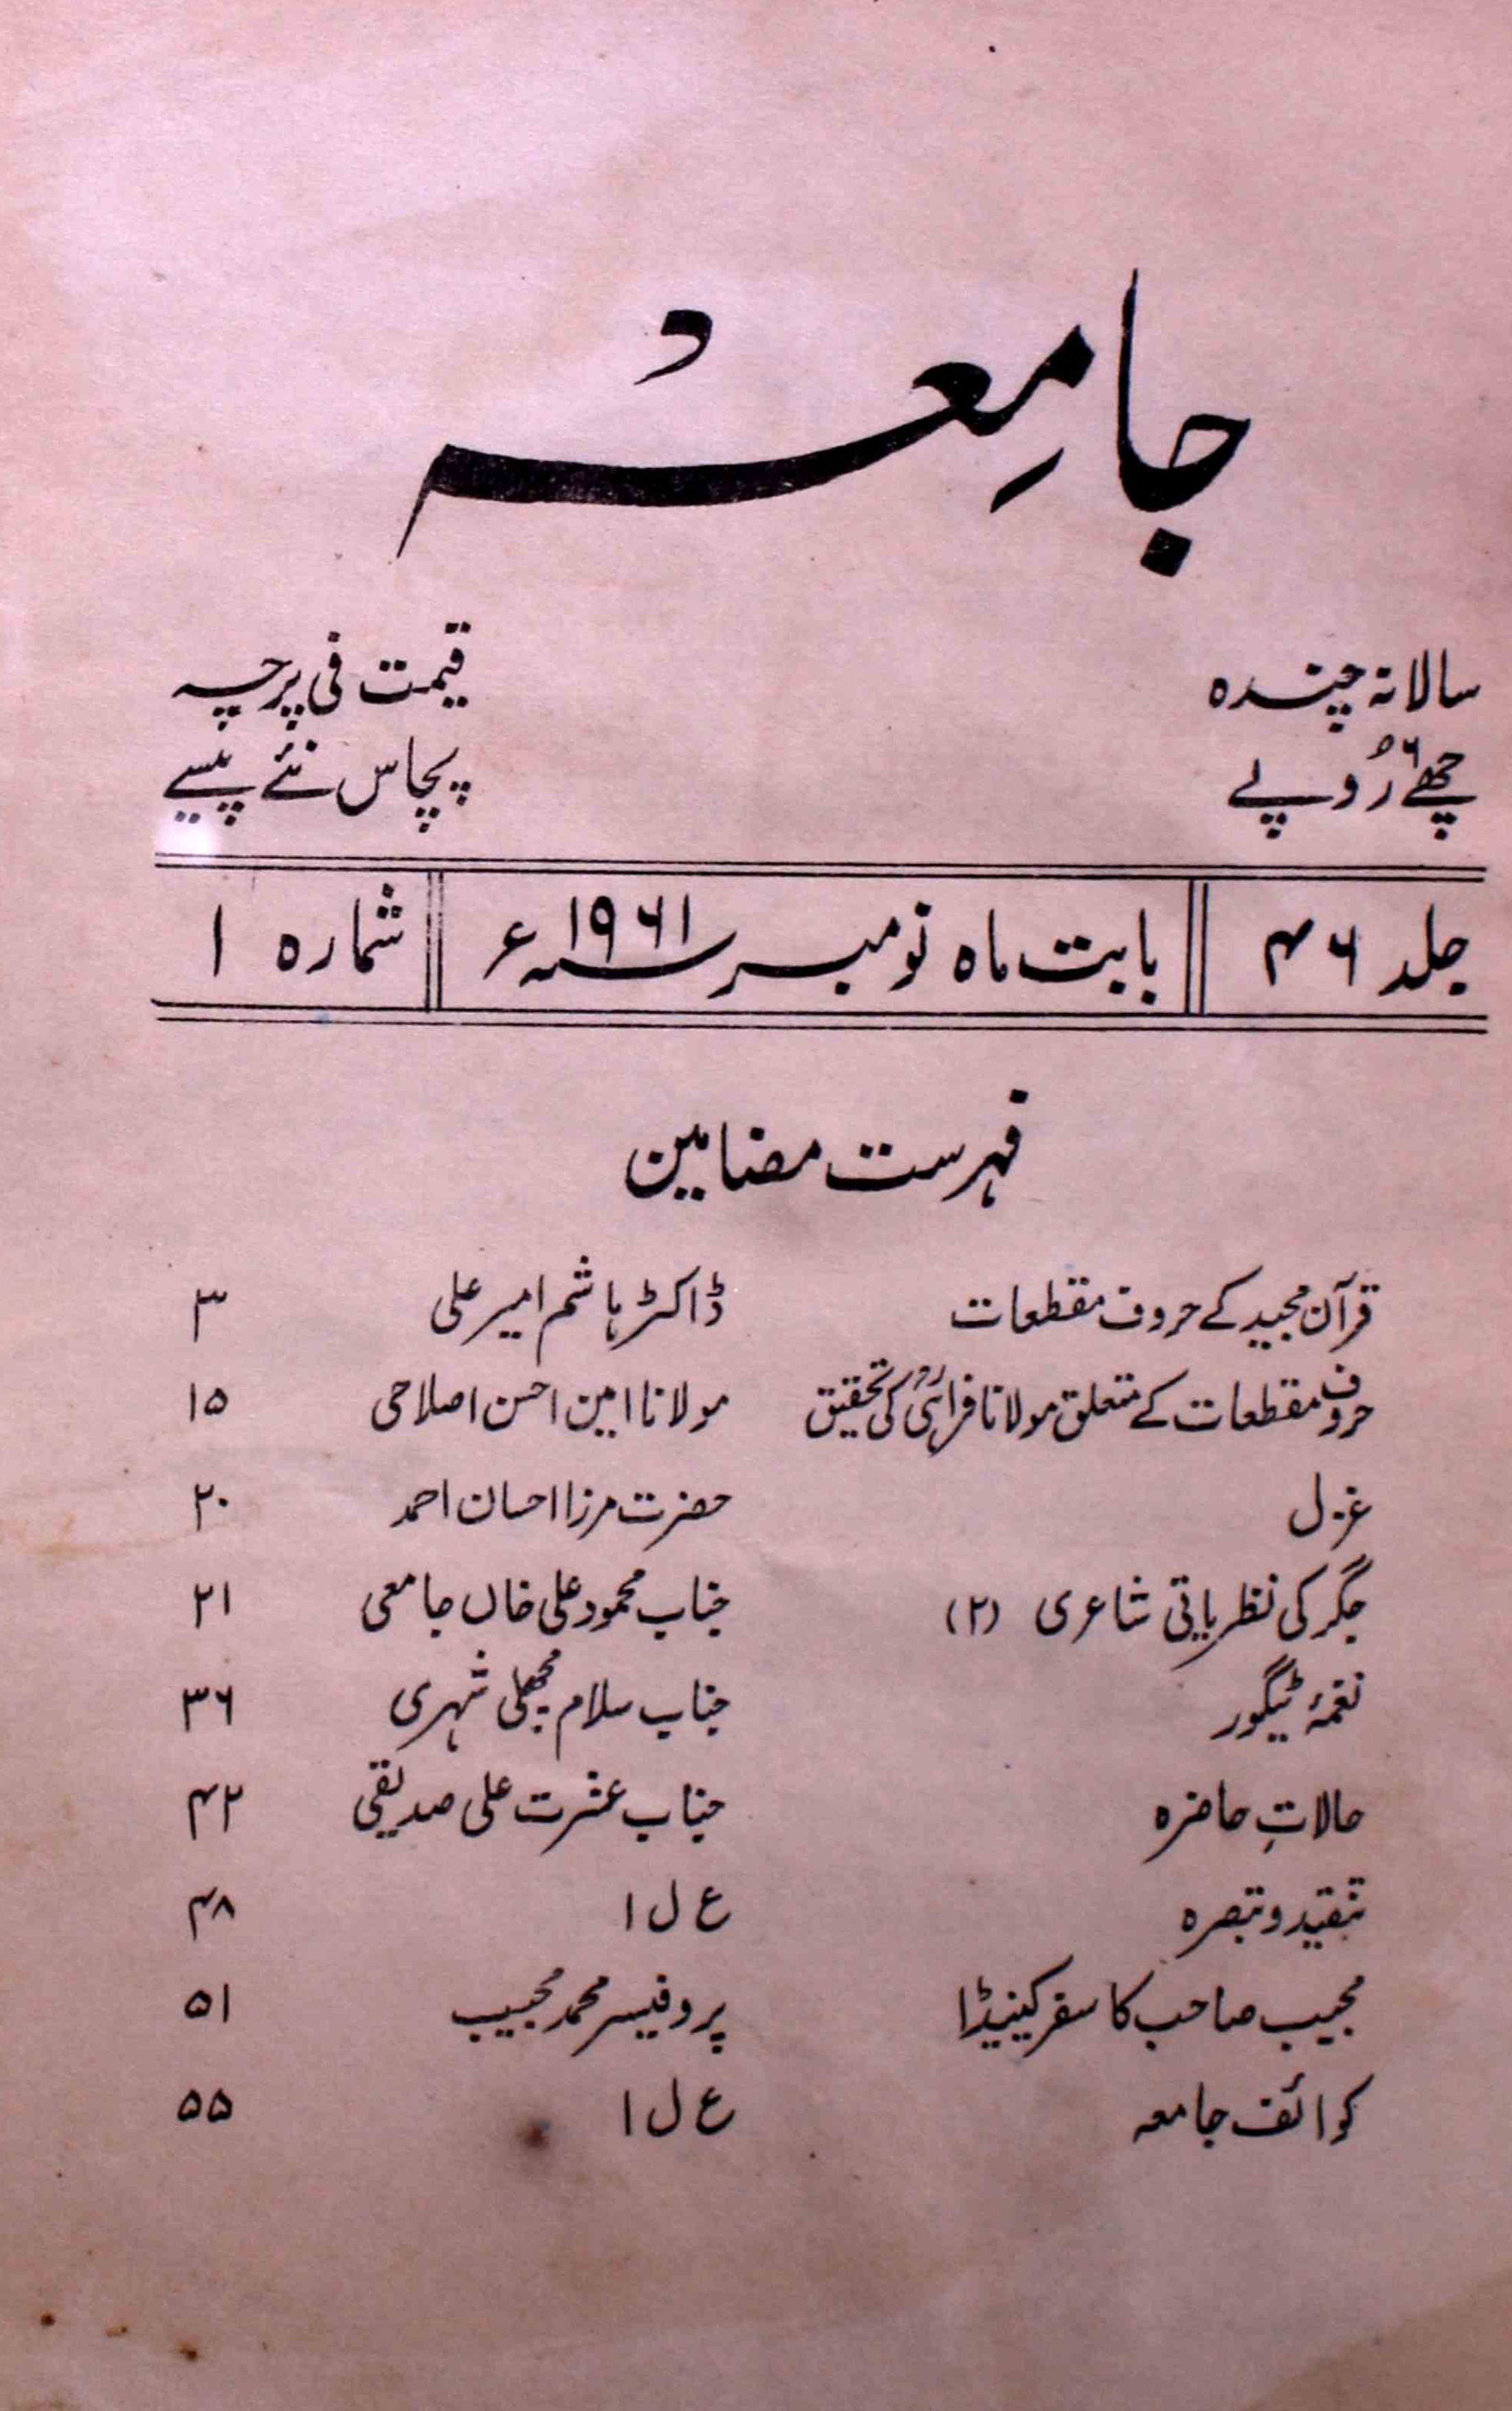 جامِعہ
سالانہ چندہ قیمت فی پرچہ
چھے رُوپے پچاس نئے پیسے
جلد ۴۶ بابت ماہ نومبر ۱۹۶۱ء شمارہ ۱
فہرست مضامین
قرآن مجید کے حروف مقطعات ڈاکٹر ہاشم امیر علی ۳
حروف مقطعات کے متعلق مولانا فراہیؒ کی تحقیق مولانا امین احسن اصلاحی ۱۵
غزل حضرت مرزا احسان احمد ۲۰
جگر کی نظریاتی شاعری (۲) جناب محمود علی خاں جامعی ۲۱
نغمۂ ٹیگور جناب سلام مچھلی شہری ۳۶
حالاتِ حاضرہ جناب عشرت علی صدیقی ۴۲
تنقید و تبصرہ ع ل ا ۴۸
مجیب صاحب کا سفر کینیڈا پروفیسر محمد مجیب ۵۱
کوائف جامعہ ع ل ا ۵۵